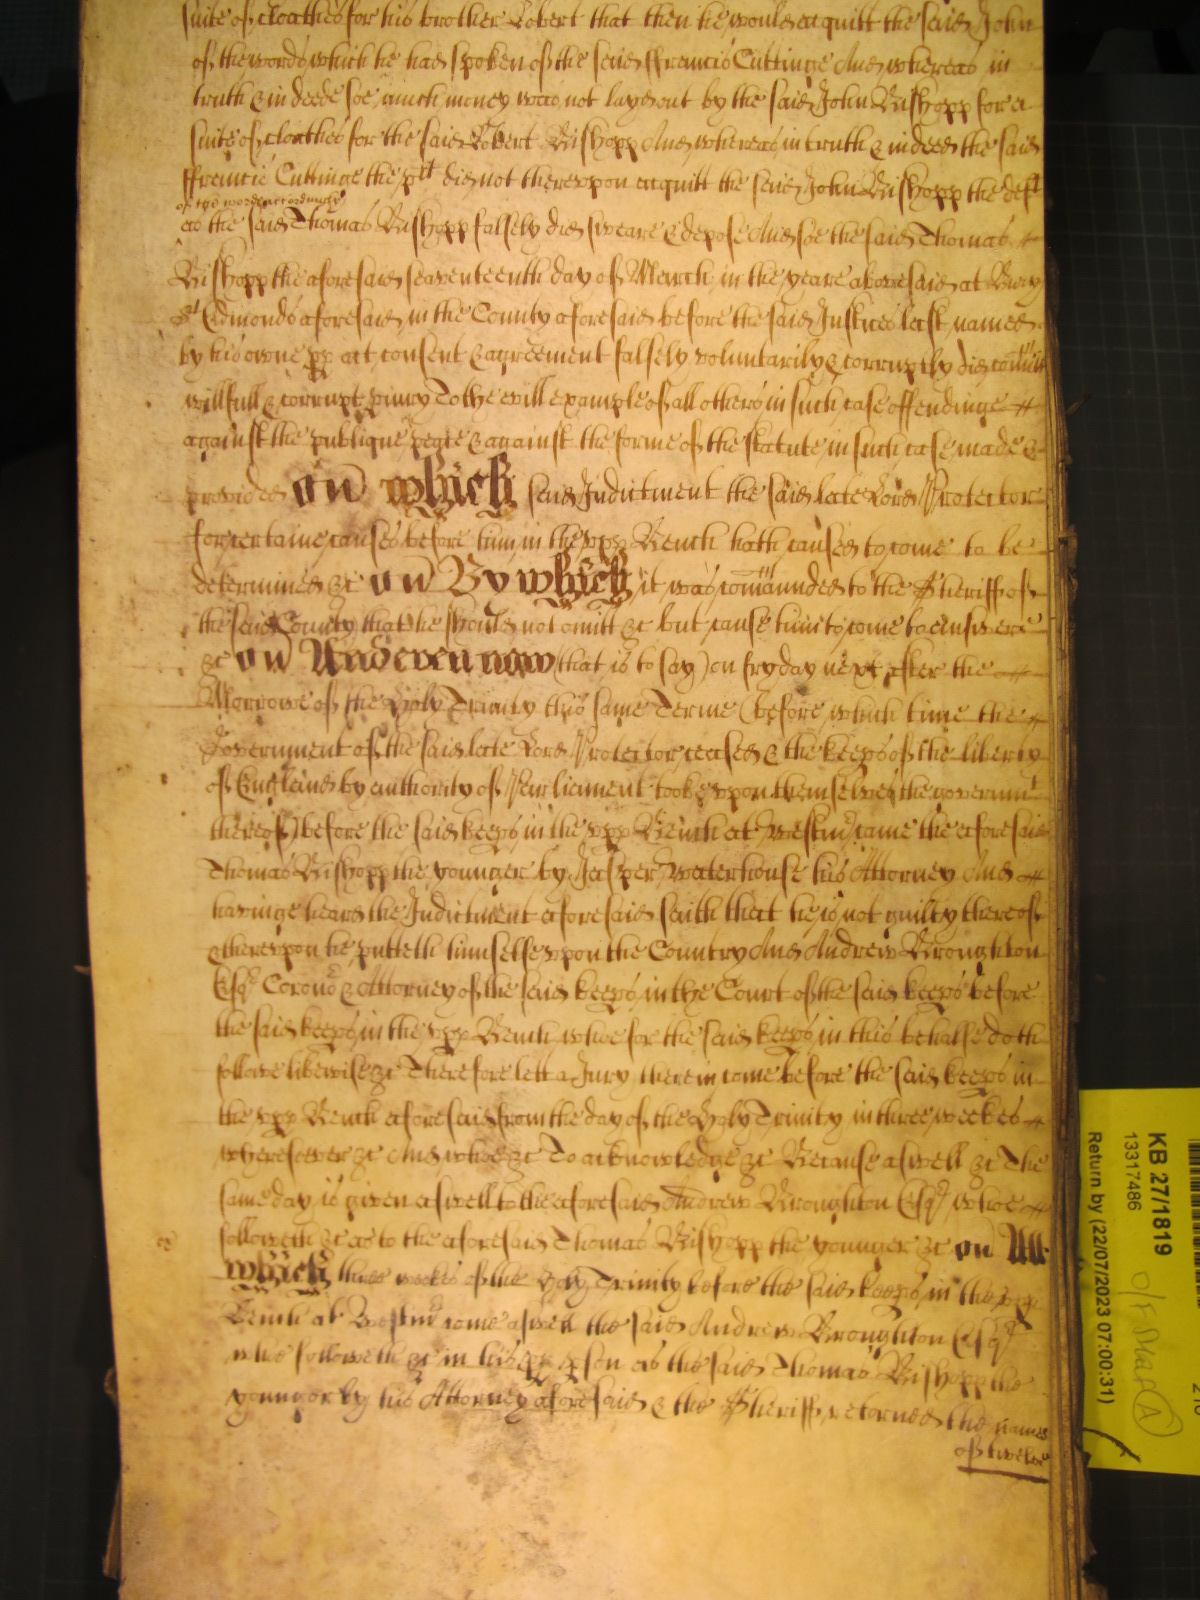 suite of cloathes for his brother Robert that then he would acquitt the said John
of the words which he had spoken of the said ffrancis Cuttinge And whereas in
truth & in deede soe much money was not layd out by the said John Bishopp for a
suite of cloathes for the said Robert Bishopp And whereas in truth & indeed the said
ffrancis Cuttinge the plt did not therevpon acquitt the said John Bishopp the deft
of the words accordingly
as the said Thomas Bishopp falsely did sweare & depose And soe the said Thomas
Bishopp the aforesaid seaventeenth day of March in the yeare abovesaid at Bury
St Edmonds aforesaid in the County aforesaid before the said Justices last named
by his owne pp act consent & agreement falsely voluntarily & corruptly did comitt
willfull & corrupt piury To the evill example of all others in such case offendinge
against the publique peace & against the forme of the statute in such case made &
provided On which said Indictment the said late Lord Protector
for certaine causes before him in the vpp Bench hath caused to come to be
determined &c On By which it was comaunded to the Sheriff of
the said County that he should not omitt &c but cause him to come to answere
&c On And even now (that is to say) on fryday next after the
Morrowe of the Holy Trinity this same Terme (before which time the
Government of the said late Lord Protector ceased & the keeps of the liberty
of England by authority of Parliament tooke vpon themselves the governmt
thereof) before the said keeps in the vpp Bench at Westmr came the aforesaid
Thomas Bishopp the younger by Jasper Waterhouse his Attorney And
havinge heard the Indictment aforesaid saith that he is not guilty thereof
& therevpon he putteth himselfe vpon the Country And Andrew Broughton
Esqr Corono & Attorney of the said keeps in the Court of the said keeps before
the said keeps in the vpp Bench whoe for the said keeps in this behalfe doth
followe likewise &c Therefore lett a Jury therein come before the said keeps in
the vpp Bench aforesaid from the day of the Holy Trinity in three weekes
wheresoever &c And whoe &c To acknowledge &c Because aswell &c The
same day is given aswell to the aforesaid Andrew Broughton Esqr whoe
followeth &c as to the aforesaid Thomas Bishopp the younger &c On Att
which three weekes of the Holy Trinity before the said keeps in the vpp
Bench at Westmr come aswell the said Andrew Broughton Esqr
whoe followeth &c in his pp pson as the said Thomas Bishopp the
younger by his Attorney aforesaid & the Sheriff retorned the names
of twelve
KB 27/1819
13317486
Return by (22/07/2023 07:00:31)
A